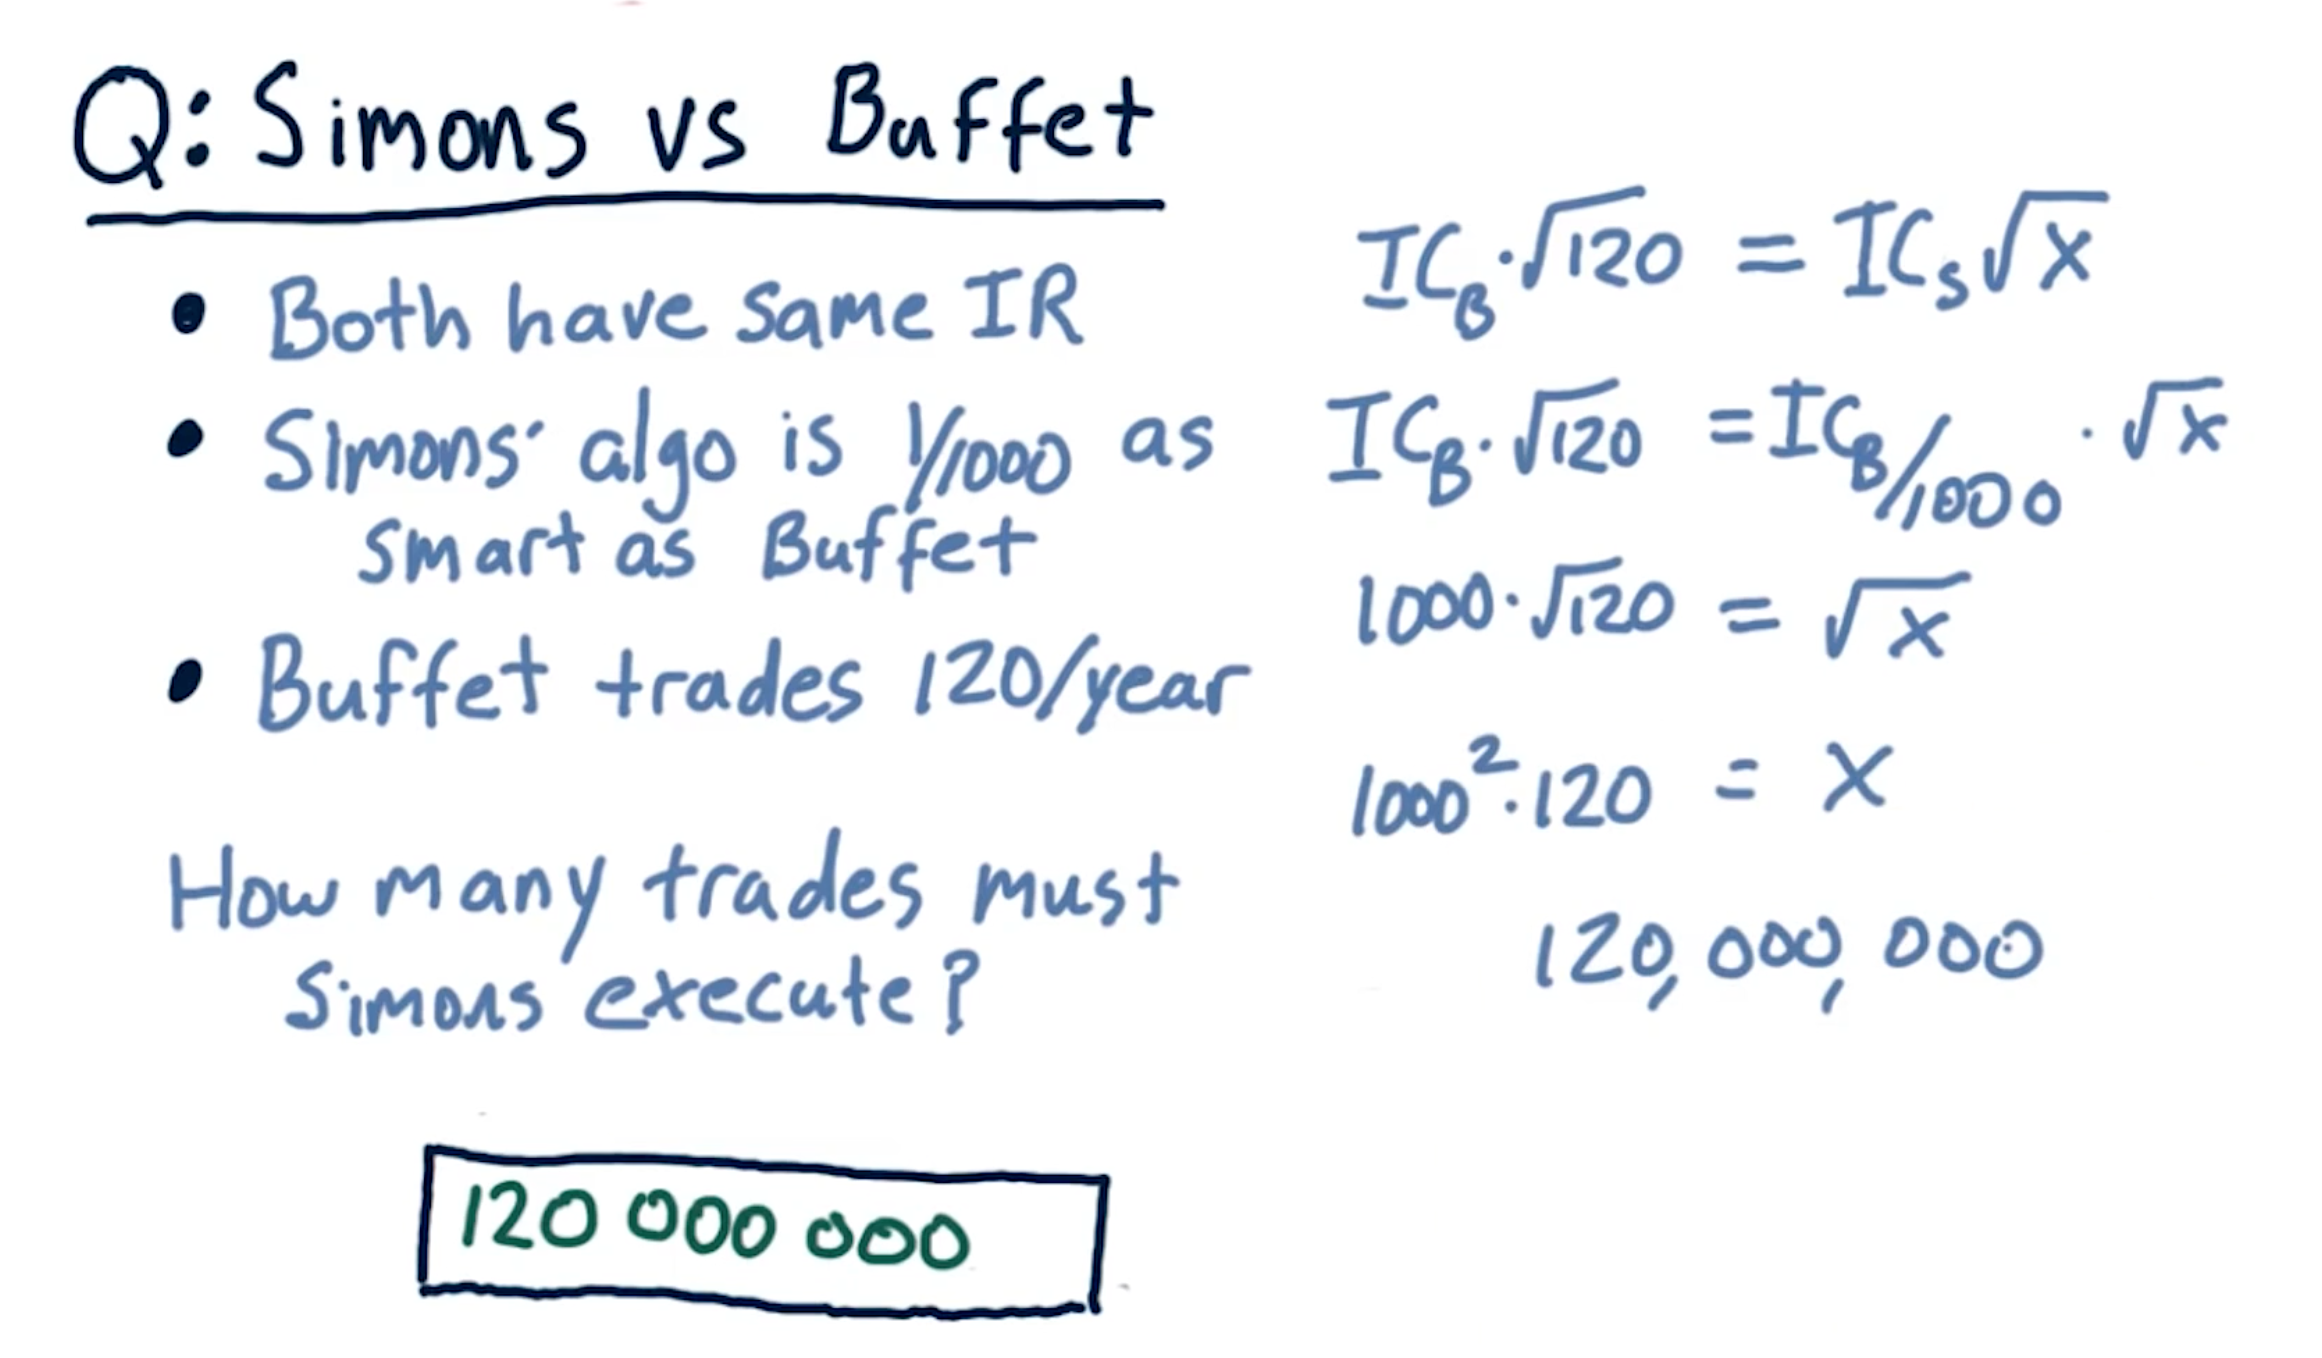 Q: Simons vs Buffet
• Both have same IR
• Simons' algo is 1/1000 as
smart as Buffet
• Buffet trades 120/year
How many trades must
Simons execute?
120 000 000
IC_B · √120 = IC_S √x
IC_B · √120 = IC_B/1000 · √x
1000 · √120 = √x
1000² · 120 = x
120,000,000